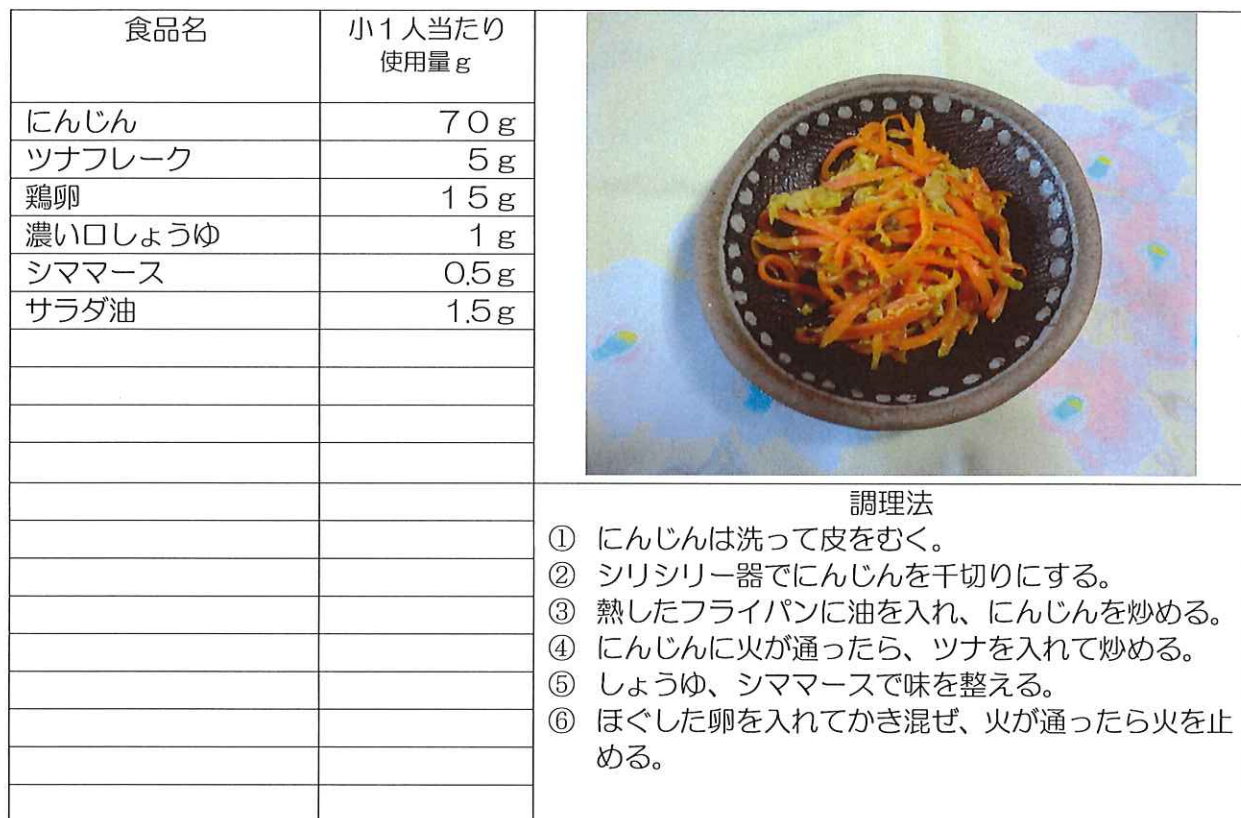 食品名
小１人当たり
使用量ｇ
にんじん ７０ｇ
ツナフレーク ５ｇ
鶏卵 １５ｇ
濃い口しょうゆ １ｇ
シママース 0.5ｇ
サラダ油 1.5ｇ
調理法
① にんじんは洗って皮をむく。
② シリシリー器でにんじんを千切りにする。
③ 熱したフライパンに油を入れ、にんじんを炒める。
④ にんじんに火が通ったら、ツナを入れて炒める。
⑤ しょうゆ、シママースで味を整える。
⑥ ほぐした卵を入れてかき混ぜ、火が通ったら火を止
める。